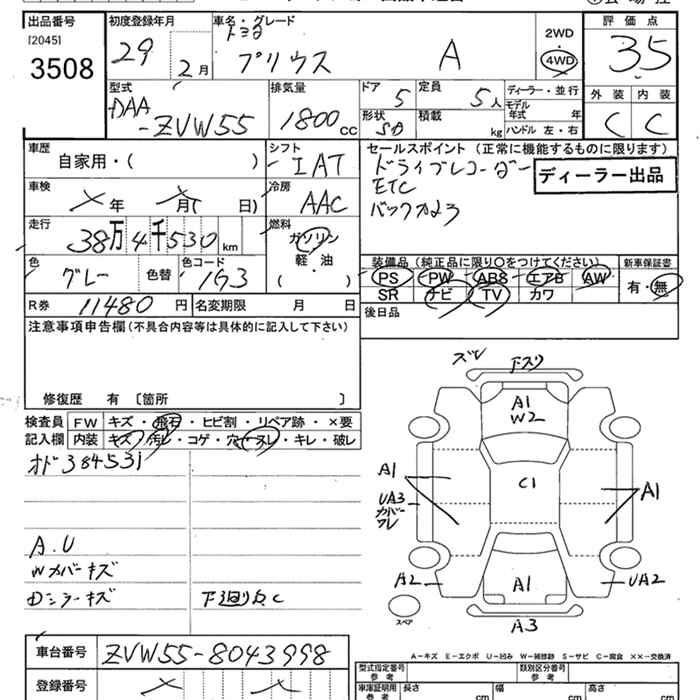 出品番号 初度登録年月 車名・グレード 評価点
[2045] トヨタ 2WD
3508 29 2月 プリウス A 4WD 35
型式 排気量 ドア 定員 ディーラー・並行 外装 内装
DAA 5 5人 モデル年式 年
-ZVW55 1800cc 形状 SD 積載 kg ハンドル 左・右 C C
車歴 シフト セールスポイント(正常に機能するものに限ります)
自家用・( ) IAT ドライブレコーダー
ディーラー出品
車検 冷房 ETC
年 月( 日) AAC バックカメラ
走行 燃料
38万4千530km ガソリン
軽・油
( )
色 色コード 装備品(純正品に限り○をつけてください) 新車保証書
グレー 色替 1G3 PS PW ABS エアB AW 有・無
SR ナビ TV カワ
R券 11480円 名変期限 月 日 後日品
注意事項申告欄(不具合内容等は具体的に記入して下さい)
修復歴 有 〔箇所 〕
検査員 FW キズ・飛石・ヒビ割・リペア跡・×要
記入欄 内装 キズ・汚レ・コゲ・穴・スレ・キレ・破レ
オド384531
A.U
Wカバーキズ
Dミラーキズ 下廻りC
ズレ 下スリ
A1
W2
A1 C1 A1
UA3
カバー
ワレ
A2 A1 UA2
スペア A3
車台番号 ZVW55-8043998
登録番号
A−キズ E−エクボ U−凹み W−補修跡 S−サビ C−腐食 XX−交換済
型式指定番号 類別区分番号
参考 参考
車庫証明用 長さ 幅 高さ
参考 cm cm cm